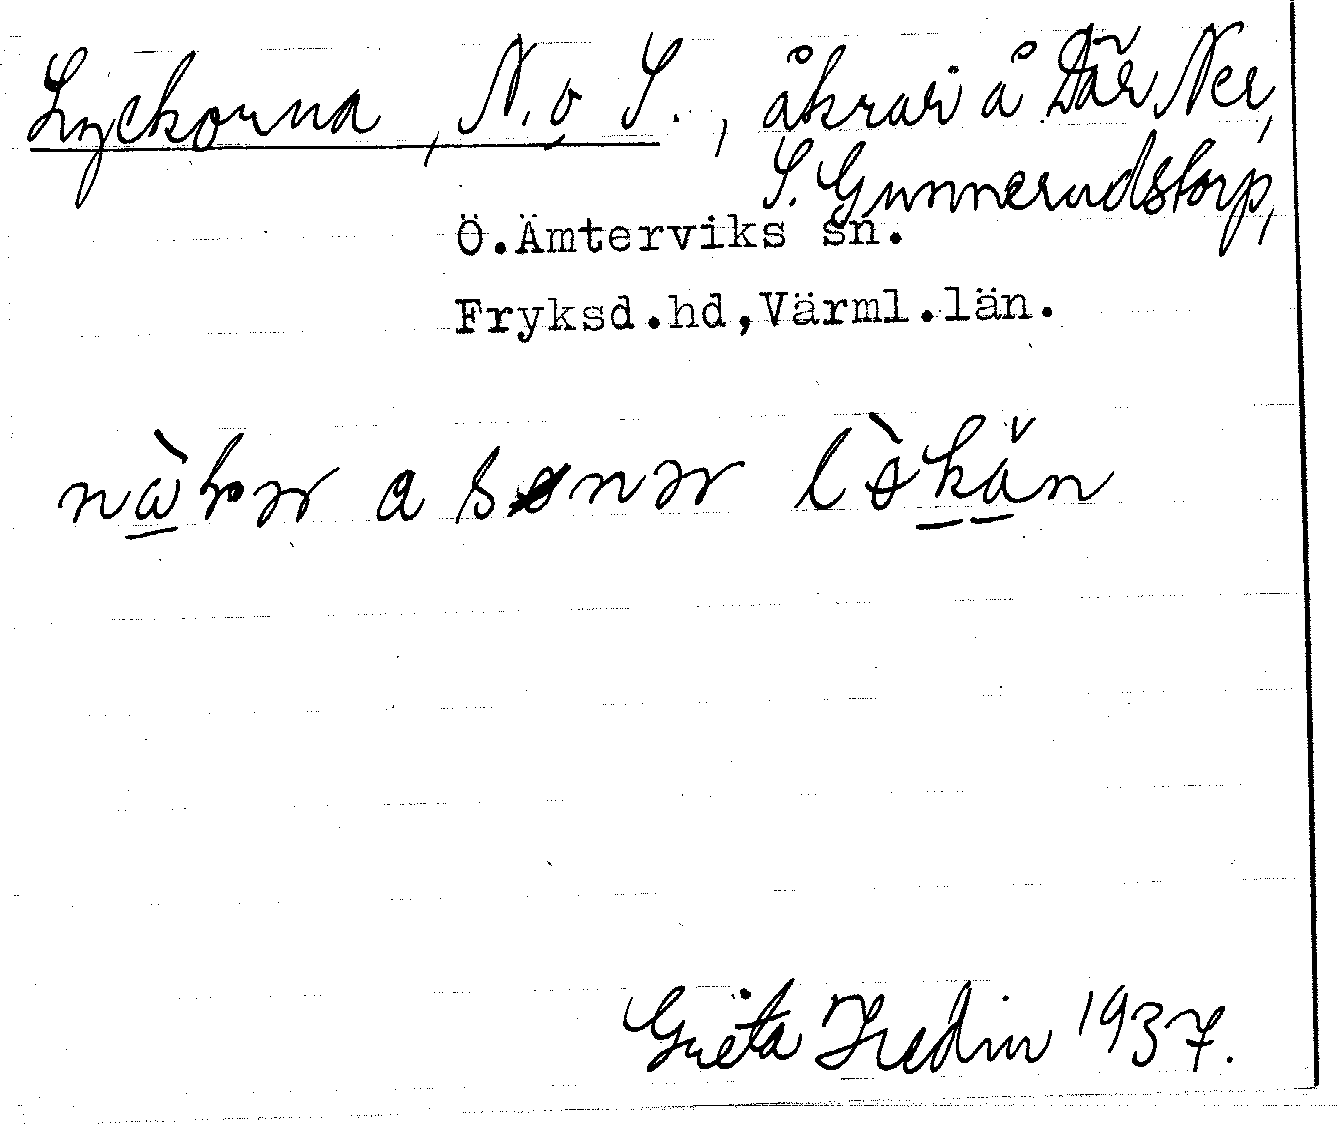 Lyckorna, N. o S., åkrar å Där Ner,
S. Gunnerudstorp,
Ö.Ämterviks sn.
Fryksd.hd,Värml.län.
Greta Hedin 1937.